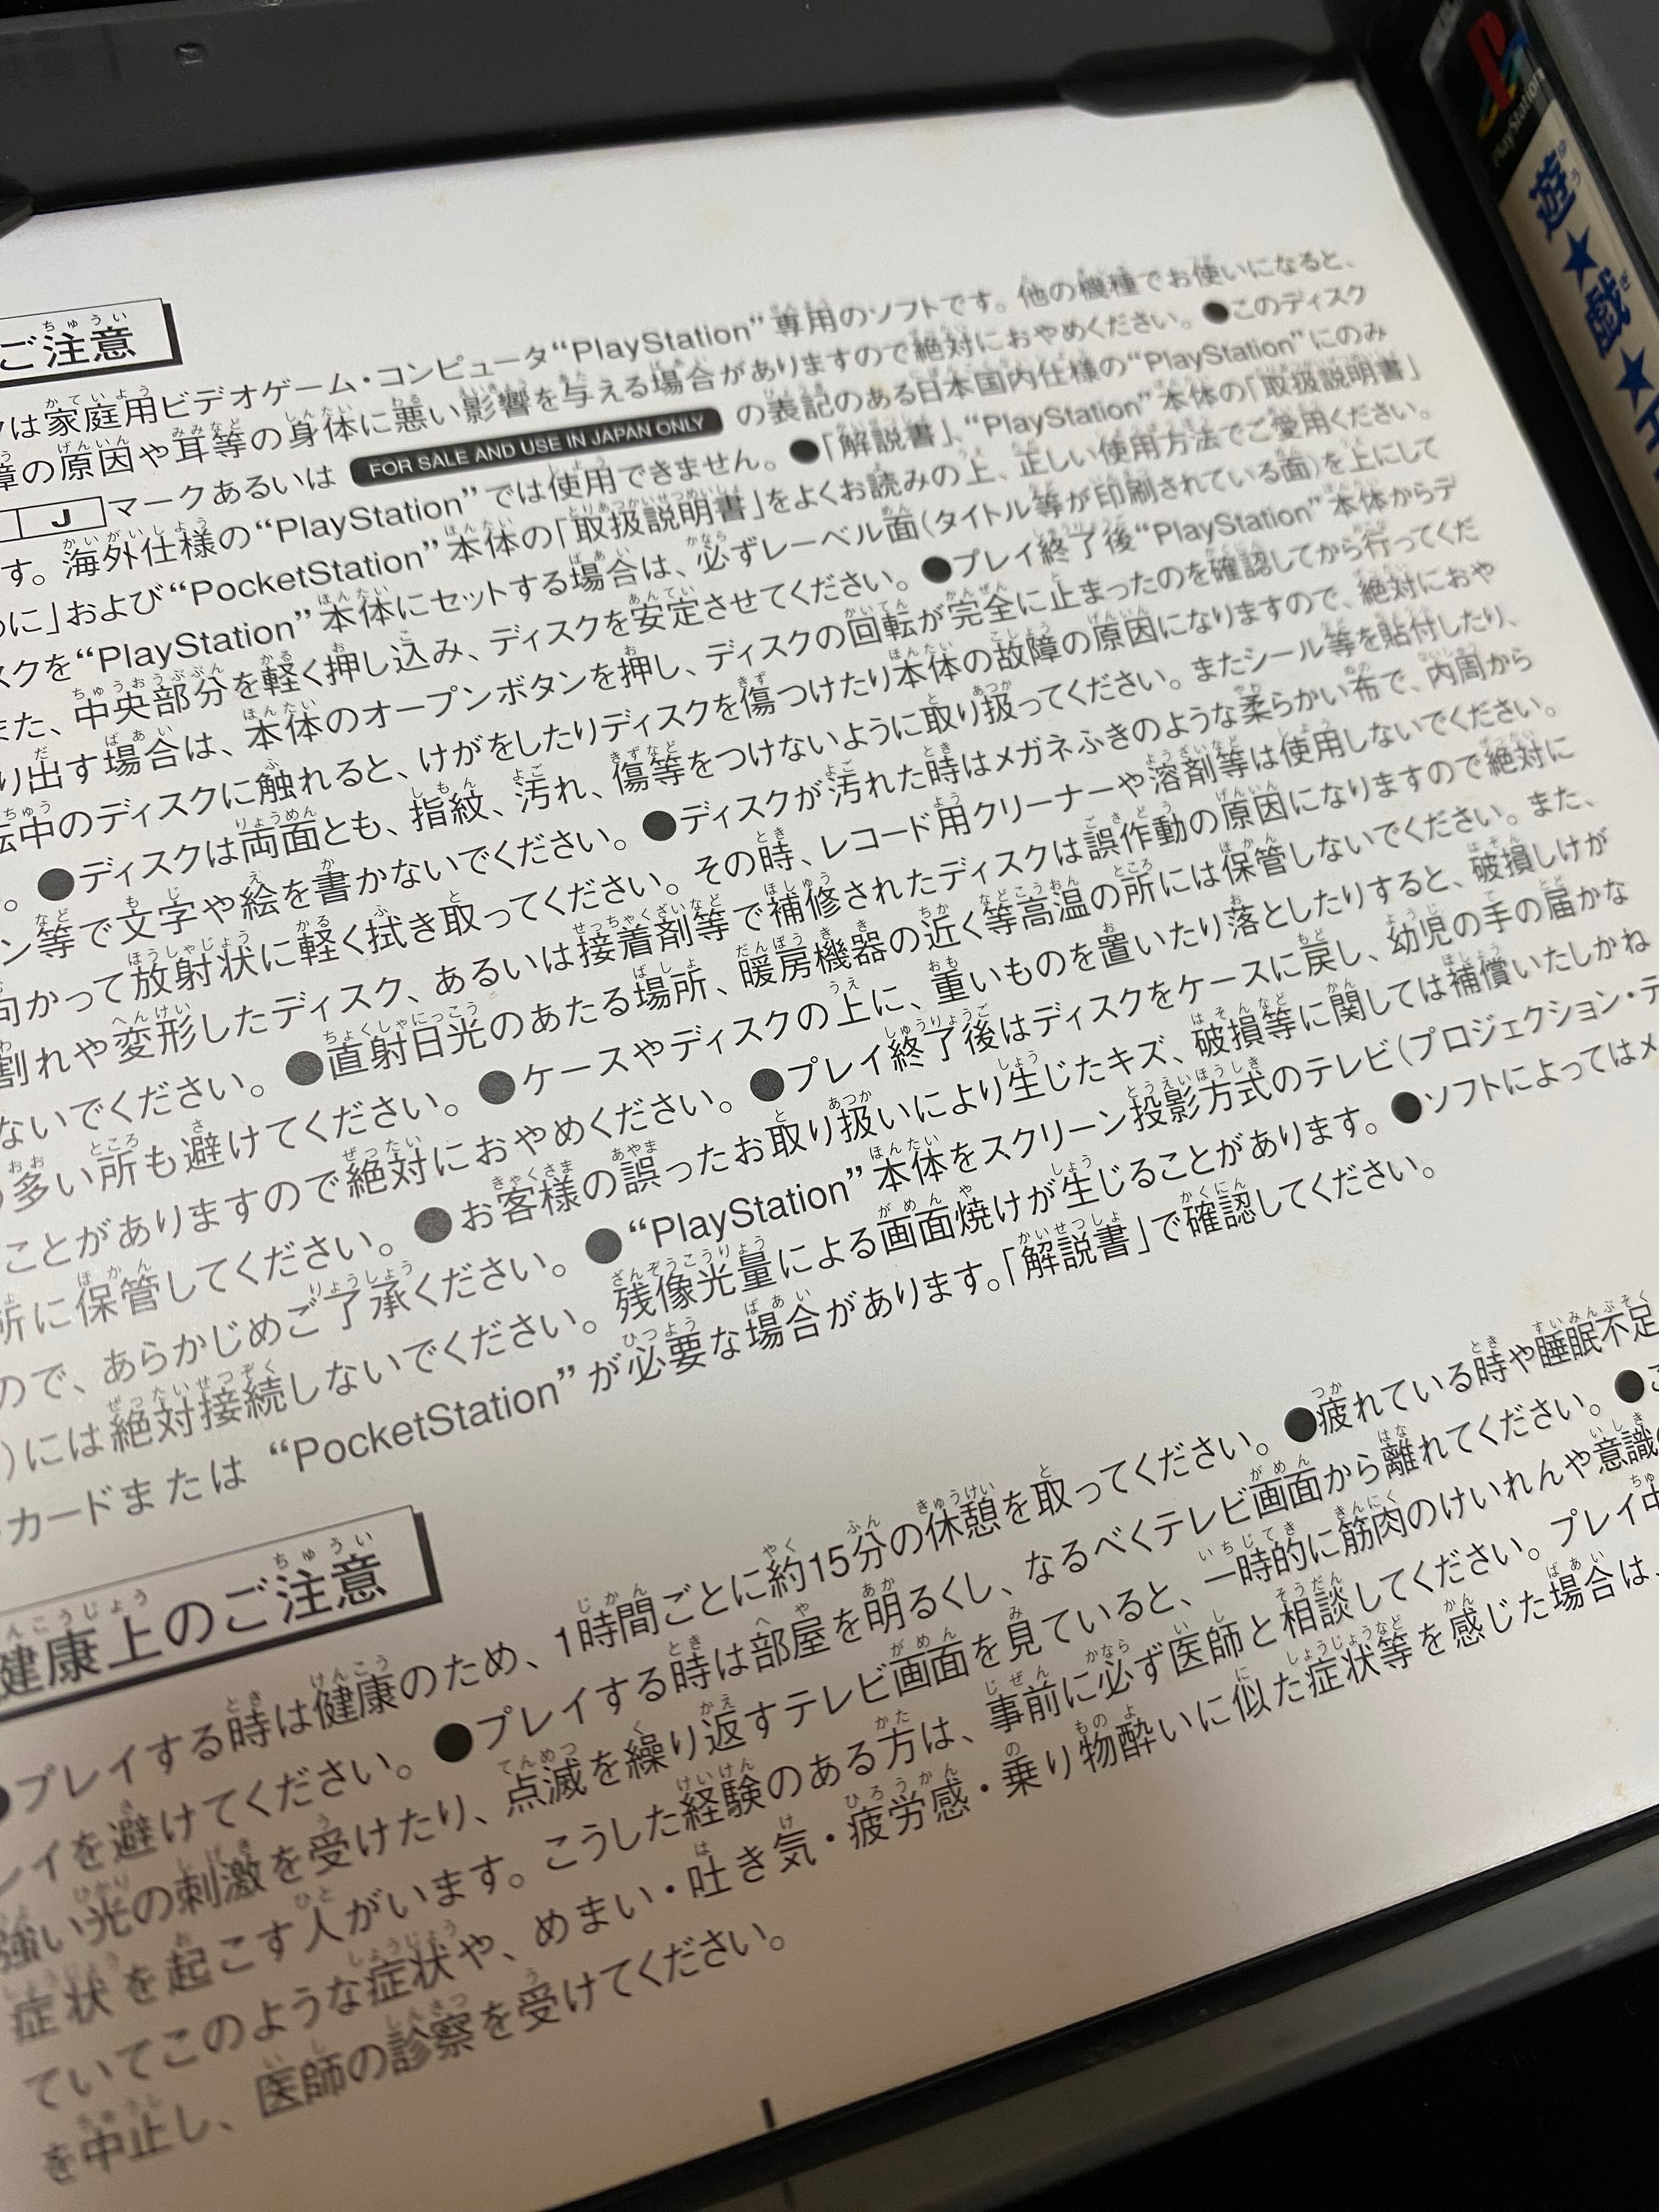 ご注意
は家庭用ビデオゲーム・コンピュータ“PlayStation”専用のソフトです。他の機種でお使いになると、
の原因や耳等の身体に悪い影響を与える場合がありますので絶対におやめください。●このディスク
J マークあるいは FOR SALE AND USE IN JAPAN ONLY の表記のある日本国内仕様の“PlayStation”にのみ
す。海外仕様の“PlayStation”では使用できません。●「解説書」、“PlayStation”本体の「取扱説明書」
に」および“PocketStation”本体の「取扱説明書」をよくお読みの上、正しい使用方法でご愛用ください。
スクを“PlayStation”本体にセットする場合は、必ずレーベル面（タイトル等が印刷されている面）を上にして
また、中央部分を軽く押し込み、ディスクを安定させてください。●プレイ終了後“PlayStation”本体からデ
り出す場合は、本体のオープンボタンを押し、ディスクの回転が完全に止まったのを確認してから行ってくだ
転中のディスクに触れると、けがをしたりディスクを傷つけたり本体の故障の原因になりますので、絶対におや
。●ディスクは両面とも、指紋、汚れ、傷等をつけないように取り扱ってください。またシール等を貼付したり、
ン等で文字や絵を書かないでください。●ディスクが汚れた時はメガネふきのような柔らかい布で、内周から
向かって放射状に軽く拭き取ってください。その時、レコード用クリーナーや溶剤等は使用しないでください。
割れや変形したディスク、あるいは接着剤等で補修されたディスクは誤作動の原因になりますので絶対に
ないでください。●直射日光のあたる場所、暖房機器の近く等高温の所には保管しないでください。また、
多い所も避けてください。●ケースやディスクの上に、重いものを置いたり落としたりすると、破損しけが
ことがありますので絶対におやめください。●プレイ終了後はディスクをケースに戻し、幼児の手の届かな
所に保管してください。●お客様の誤ったお取り扱いにより生じたキズ、破損等に関しては補償いたしかね
ので、あらかじめご了承ください。●“PlayStation”本体をスクリーン投影方式のテレビ（プロジェクション・テ
）には絶対接続しないでください。残像光量による画面焼けが生じることがあります。●ソフトによってはメ
カードまたは“PocketStation”が必要な場合があります。「解説書」で確認してください。
健康上のご注意
●プレイする時は健康のため、1時間ごとに約15分の休憩を取ってください。●疲れている時や睡眠不足
レイを避けてください。●プレイする時は部屋を明るくし、なるべくテレビ画面から離れてください。●こ
強い光の刺激を受けたり、点滅を繰り返すテレビ画面を見ていると、一時的に筋肉のけいれんや意識の
症状を起こす人がいます。こうした経験のある方は、事前に必ず医師と相談してください。プレイ中
ていてこのような症状や、めまい・吐き気・疲労感・乗り物酔いに似た症状等を感じた場合は、
を中止し、医師の診察を受けてください。
PlayStation
遊★戯★王